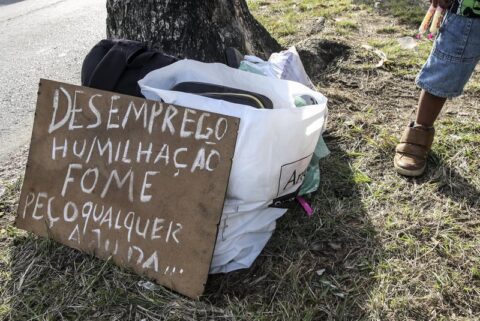 DESEMPREGO
HUMILHAÇÃO
FOME
PEÇO QUALQUER
AJUDA...